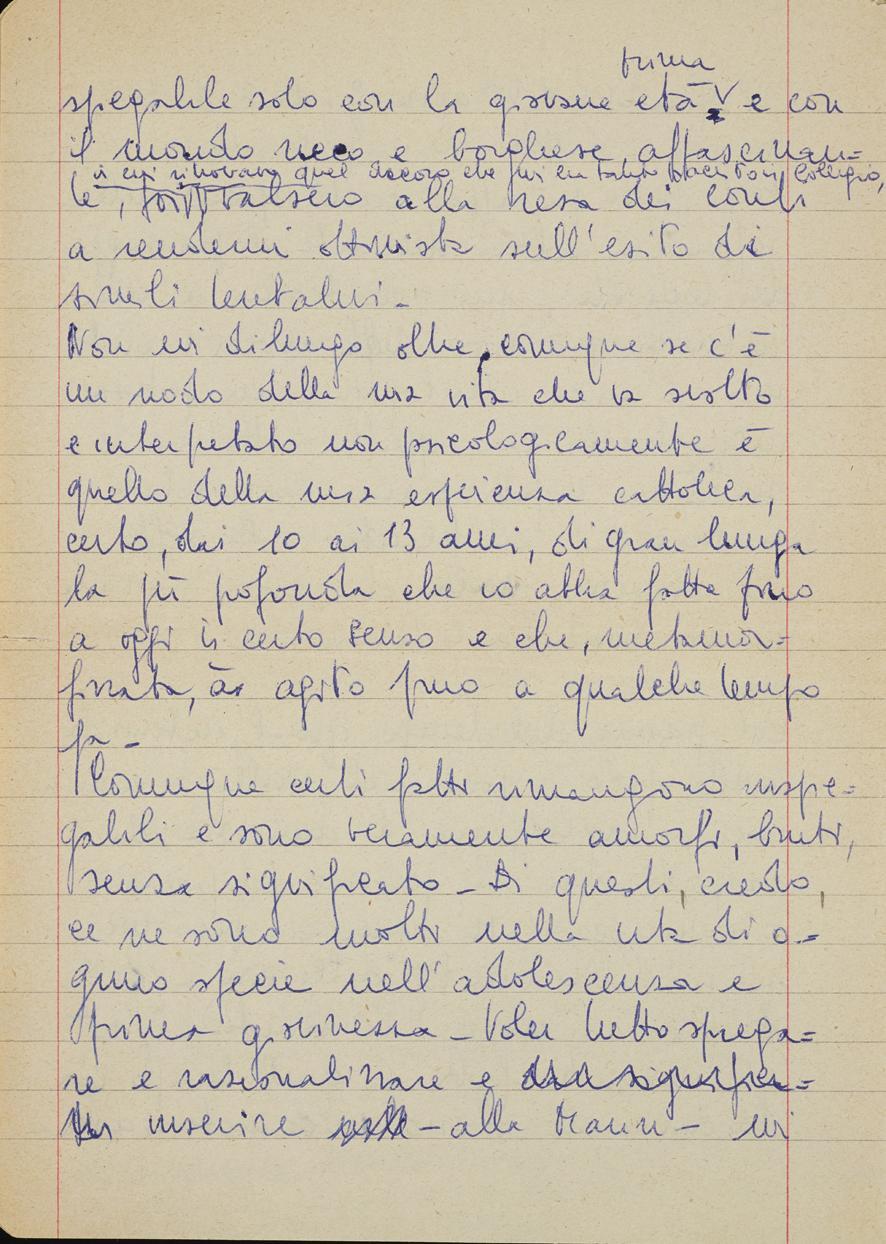 prima
spiegabile solo con la giovane età e con
il mondo ricco e borghese, affascinan=
in cui ritrovavo quel decoro che mi era tanto in Collegio,
te, valsero alla resa dei conti
a rendermi ottimista sull'esito di
simili tentativi.
Non mi dilungo oltre, comunque se c'è
un nodo della mia vita che va sciolto
e interpretato non psicologicamente è
quello della mia esperienza cattolica,
certo, dai 10 ai 13 anni, di gran lunga
la più profonda che io abbia fatta fino
a oggi in certo senso e che, metamor=
fizzata, à agito fino a qualche tempo
fa -
Comunque certi fatti rimangono inspie=
gabili e sono veramente amorfi, bruti,
senza significato - Di questi, credo,
ce ne sono molti nella vita di o=
gnuno specie nell'adolescenza e
prima giovinezza - Voler tutto spiega=
re e razionalizzare e
inserire - alla Mann - mi